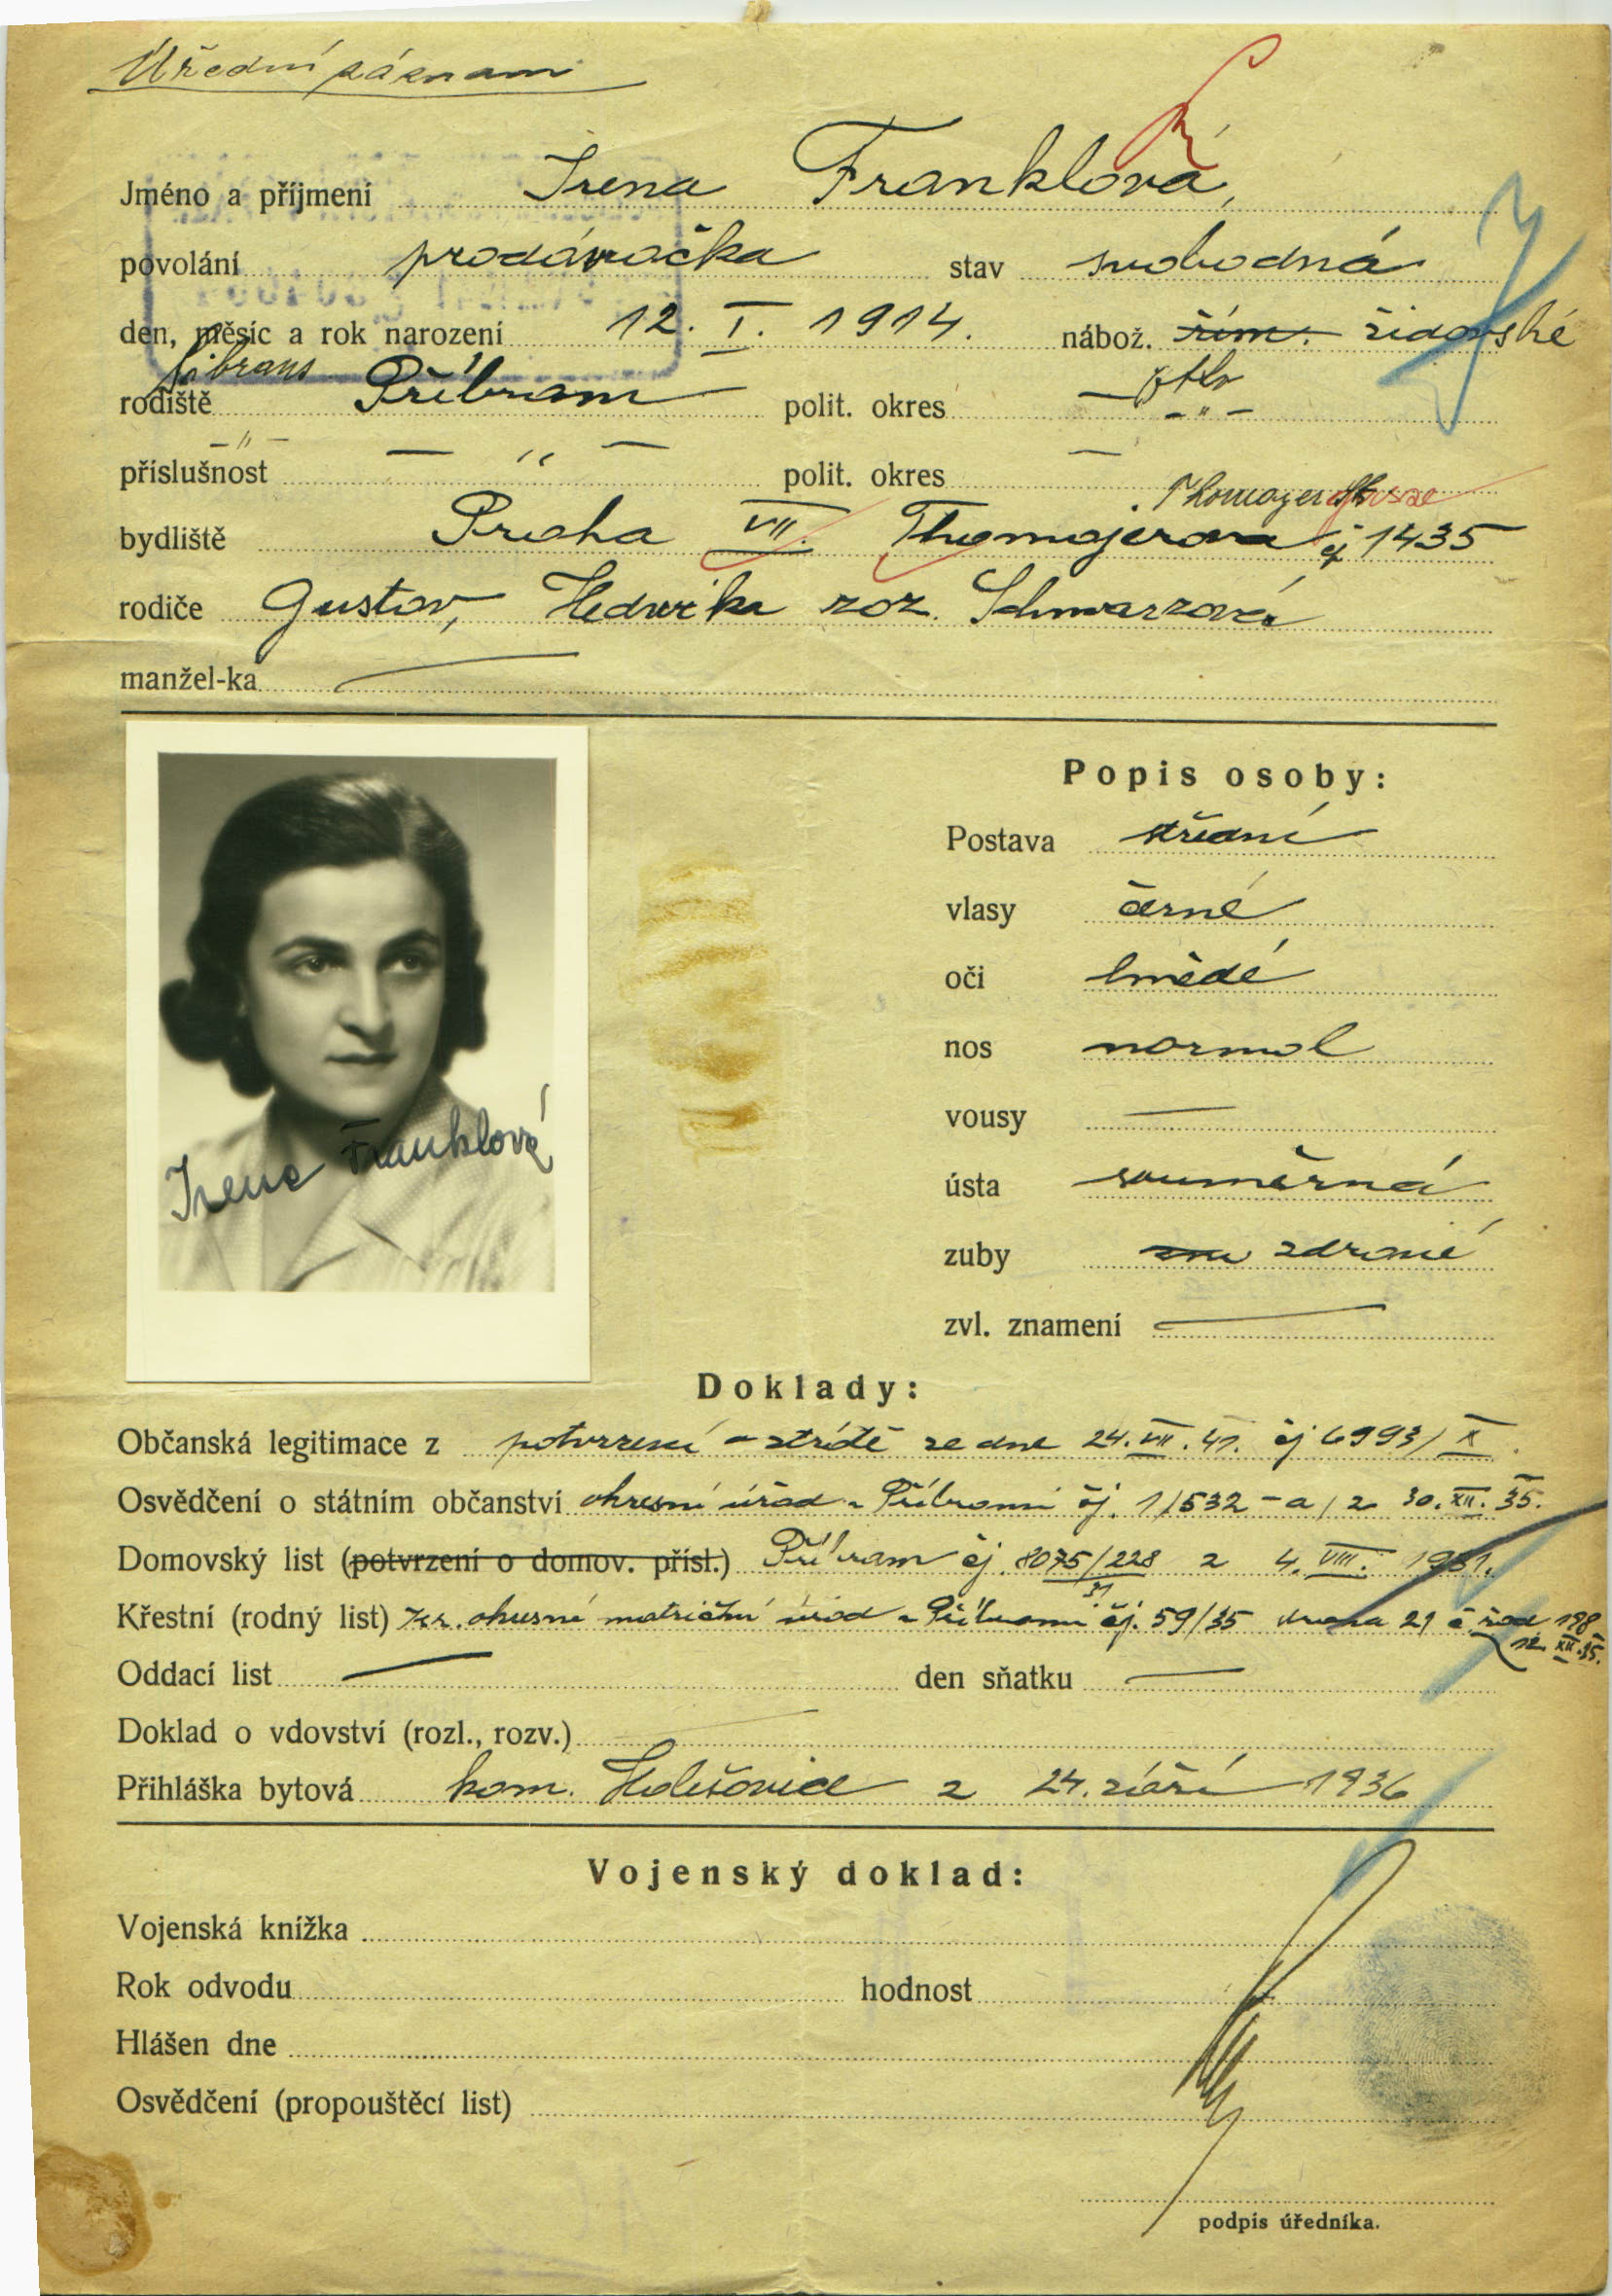 Úřední záznam
Jméno a příjmení Irena Franklová,
povolání prodavačka stav svobodná
den, měsíc a rok narození 12. I. 1914. nábož. řím. židovské
Pibrans
rodiště Příbram polit. okres — " —
— " —
příslušnost — " — polit. okres —
Thomayer
bydliště Praha VII. Thomajerova čj 1435
rodiče Gustav, Hedvika roz. Schwarzová
manžel-ka
Popis osoby:
Postava střední
vlasy černé
oči hnědé
nos normal
vousy —
ústa souměrná
zuby zdravé
zvl. znamení —
Irena Franklová
Doklady:
Občanská legitimace z potvrzení o ztrátě ze dne 24. VII. 41. čj 6993/X.
Osvědčení o státním občanství okresní úřad v Příbrami čj. 1/532-a/2 30. XII. 35.
Domovský list (potvrzení o domov. přísl.) Příbram čj 8075/228 z 4. VIII. 1931.
31
Křestní (rodný list) žr. okresní matriční úřad v Příbrami čj. 59/35 strana 21 č. řad 198
12. XII. 35.
Oddací list — den sňatku —
Doklad o vdovství (rozl., rozv.)
Přihláška bytová kom. Holešovice z 24. září 1936
Vojenský doklad:
Vojenská knížka
Rok odvodu hodnost
Hlášen dne
Osvědčení (propouštěcí list)
podpis úředníka.